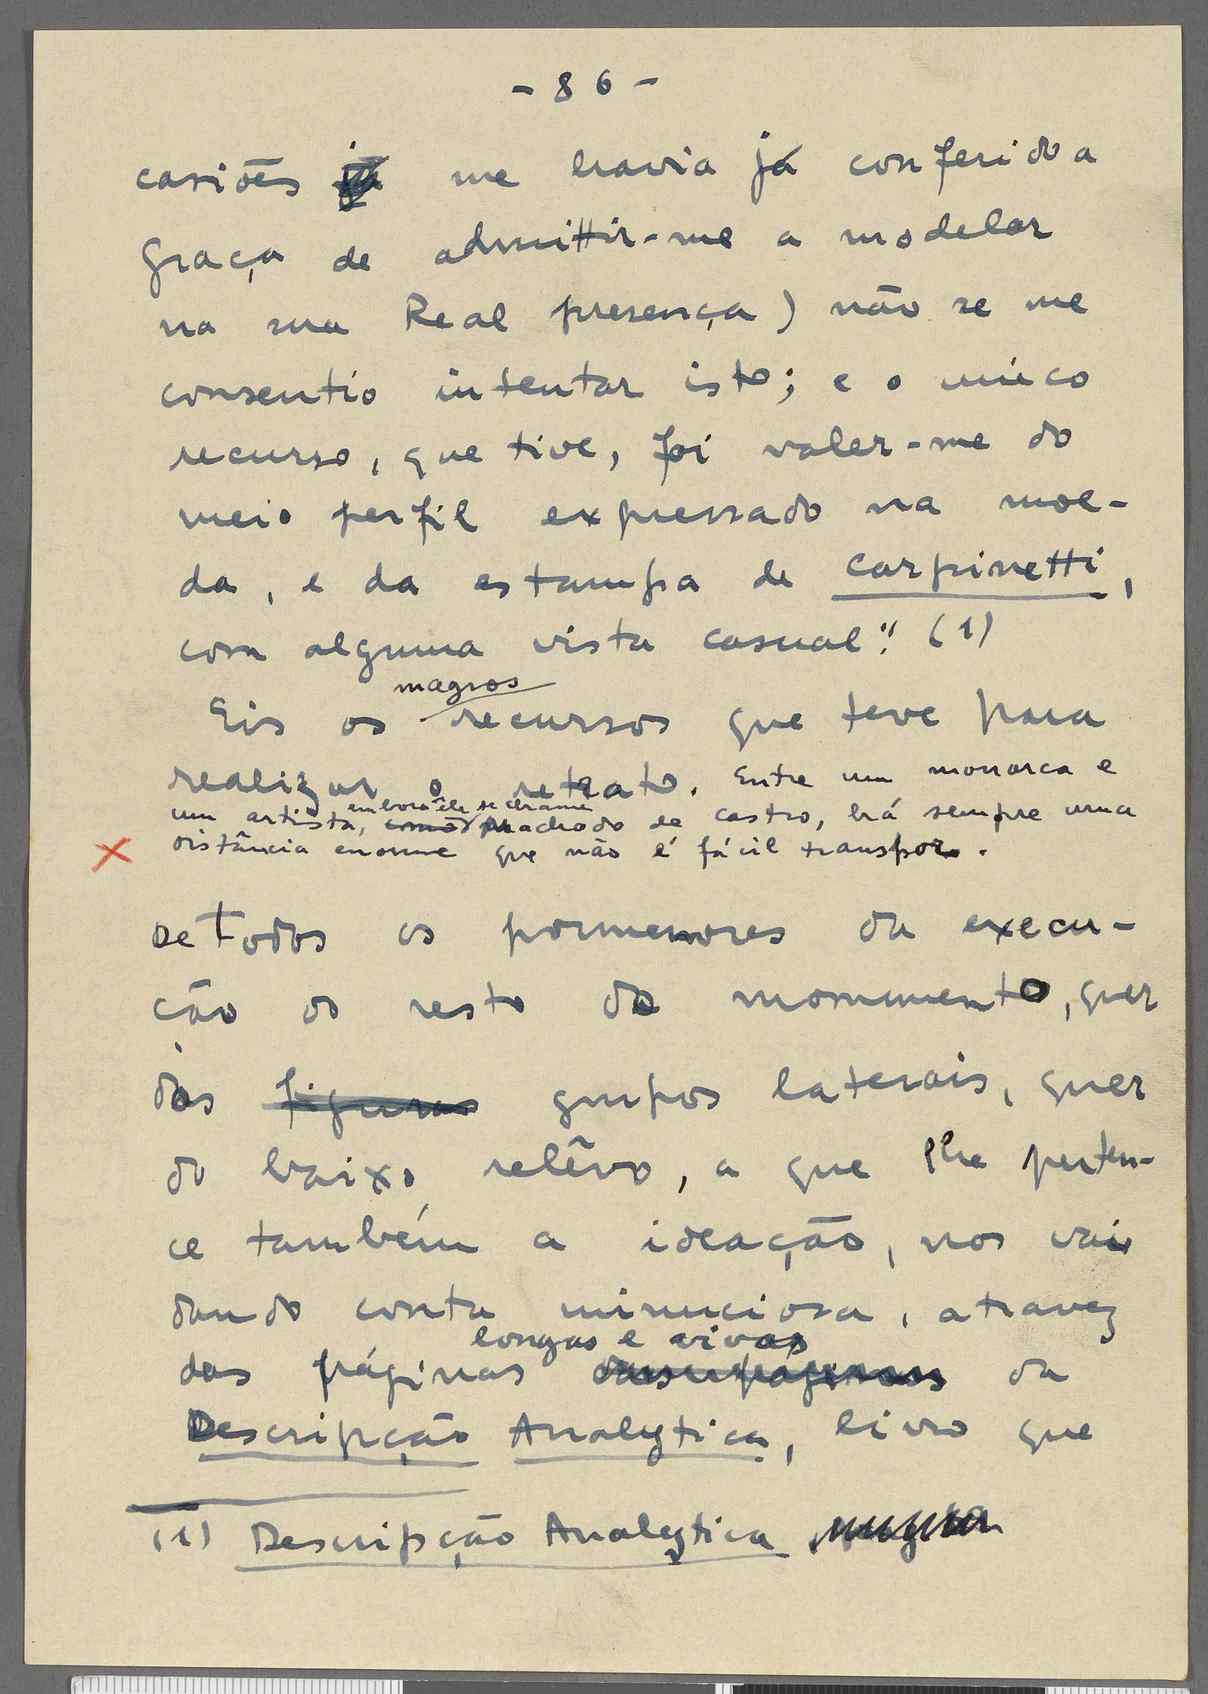 - 86 -
casiões me havia já conferido a
graça de admittir-me a modelar
na sua Real presença) não se me
consentio intentar isto; e o unico
recurso, que tive, foi valer-me do
meio perfil expressado na moe-
da, e da estampa de Carpinetti,
com alguma vista casual". (1)
magros
Eis os recursos que teve para
realizar o retrato. Entre um monarca e
embora êle se chame
um artista, como Machado de Castro, há sempre uma
x distância enorme que não é fácil transpor.
De Todos os pormenores da execu-
ção do resto do monumento, quer
dos figuras grupos laterais, quer
do baixo relêvo, a que lhe perten-
ce também a ideação, nos vai
dando conta minuciosa, atravez
longas e vivas
das páginas da
Descripção Analytica, livro que
(1) Descripção Analytica